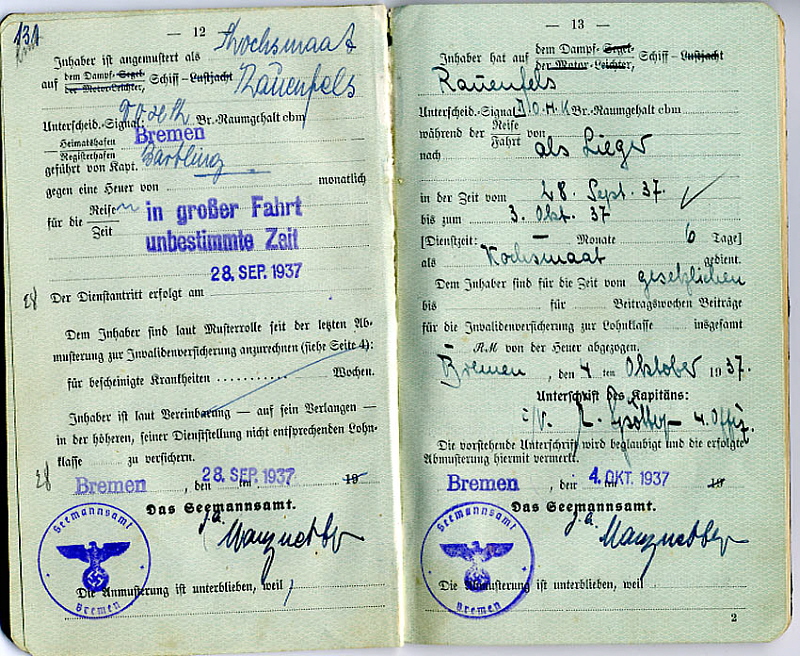 131
— 12
Inhaber ist angemustert als Kochsmaat
auf dem Dampf- Segel- Schiff – Lustjacht Rauenfels
der Motor-Leichter,
Unterscheid.-Signal: D O H K Br.-Raumgehalt cbm
Heimatshafen Bremen
Registerhafen
geführt von Kapt. Bartling
gegen eine Heuer von monatlich
für die Reise in großer Fahrt
Zeit unbestimmte Zeit
28. SEP. 1937
Der Dienstantritt erfolgt am
Dem Inhaber sind laut Musterrolle seit der letzten Ab-
musterung zur Invalidenversicherung anzurechnen (siehe Seite 4):
für bescheinigte Krankheiten ........... Wochen.
Inhaber ist laut Vereinbarung — auf sein Verlangen —
in der höheren, seiner Dienststellung nicht entsprechenden Lohn-
klasse zu versichern.
Bremen, den 28. SEP. 1937 19
Das Seemannsamt.
J.A.
Seemannsamt
Bremen
Die Anmusterung ist unterblieben, weil
— 13 —
Inhaber hat auf dem Dampf- Segel- Schiff – Lustjacht
der Motor-Leichter,
Rauenfels
Unterscheid.-Signal D.O.H.K Br.-Raumgehalt cbm
während der Reise von
Fahrt
nach als Lieger
in der Zeit vom 28. Sept. 37.
bis zum 3. Okt. 37
[Dienstzeit: — Monate 6 Tage]
als Kochsmaat gedient.
Dem Inhaber sind für die Zeit vom gesetzlichen
bis für Beitragswochen Beiträge
für die Invalidenversicherung zur Lohnklasse insgesamt
RM von der Heuer abgezogen.
Bremen, den 4 ten Oktober 1937.
Unterschrift des Kapitäns:
i/V. 4. Offiz.
Die vorstehende Unterschrift wird beglaubigt und die erfolgte
Abmusterung hiermit vermerkt.
Bremen, den 4. OKT. 1937 19
Das Seemannsamt.
J.A.
Seemannsamt
Bremen
Die Abmusterung ist unterblieben, weil
2